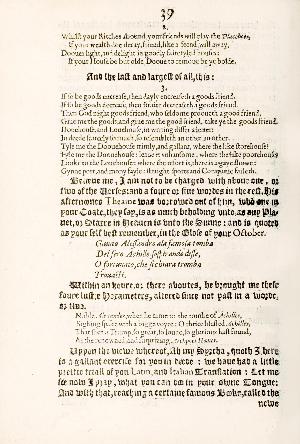 39
2.
Whilst your Ritches abound, your friends will play the Placeboes,
If your wealth doe decay, friend, like a feend, will away,
Dooues light, and delight in goodly fairetyled houses:
If your House be but olde, Dooue to remoue be ye bolde.
And the last and largest of all, this:
3.
If so be goods encrease, then dayly encreaseth a goods friend.
If so be goods decrease, then straite decreaseth a goods friend.
Then God night goods friend, who seldome prooueth a good friend,
Giue me the goods, and giue me the good friend, take ye the goods friend.
Douehouse, and Louehouse, in writing differ a letter:
In deede scarcely so much, so resembleth an other an other.
Tyle me the Doouehouse trimly, and gallant, where the like storehouse?
Fyle me the Doouehouse: leaue it vnhansome, where the like poorehouse?
Looke to the Louehouse: where the resort is, there is a gaye showe:
Gynne port, and mony fayle: straight sports and Companie faileth.
Beleeue me, I am not to be charged with aboue one, or
two of the Verses: and a foure or fiue wordes in the rest. His
afternoones Theame was borrowed out of him, whom one in
your Coate, they say, is as much beholding vnto, as any Pla-
net, or Starre in Heauen is vnto the Sunne: and is quoted
as your self best remember, in the Close of your October.
Giunto Alessandro ala famosa tomba
Del fero Achille, sospirando disse,
O fortunato, che si chiara tromba
Trouasti.
Within an houre, or there aboutes, he brought me these
foure lustie Hexameters, altered since not past in a worde,
or two.
Noble Alexander, when he came to the tombe of Achilles,
Sighing spake with a bigge voyce: O thrice blessed Achilles,
That such a Trump, so great, so loude, so glorious hast found,
As the renowned, and surprizing Archpoet Homer.
Vppon the viewe whereof, Ah my Syrrha, quoth I here
is a gallant exercise for you in deede: we haue had a little
prettie triall of you Latin, and Italian Translation: Let me
see now I pray, what you can doo in your owne Tongue:
And with that, reaching a certaine famous Booke, called the
newe